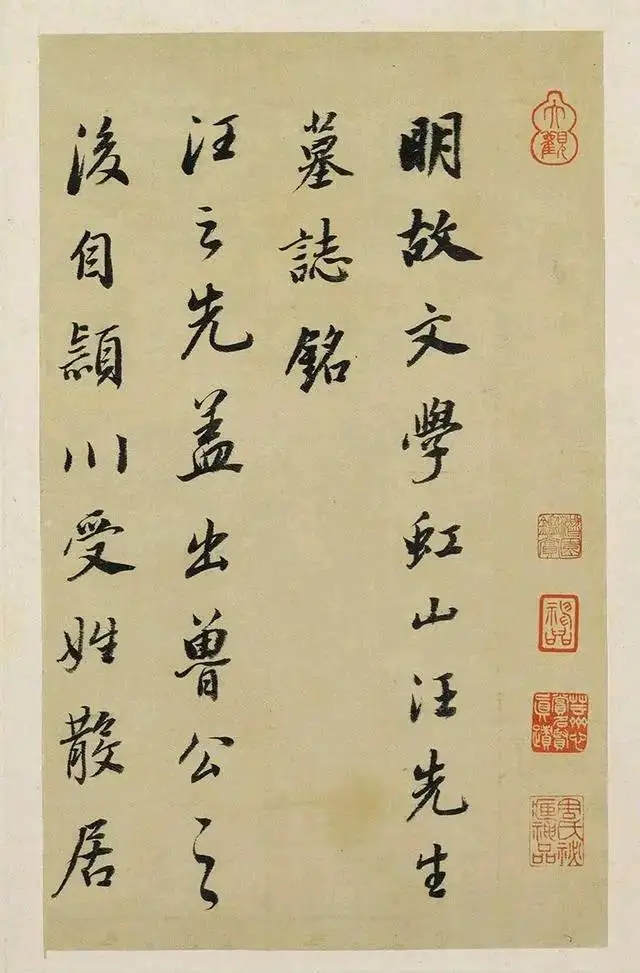 明故文學虹山汪先生
墓誌銘
汪之先盖出魯公之
後自頴川受姓散居
大觀
神品